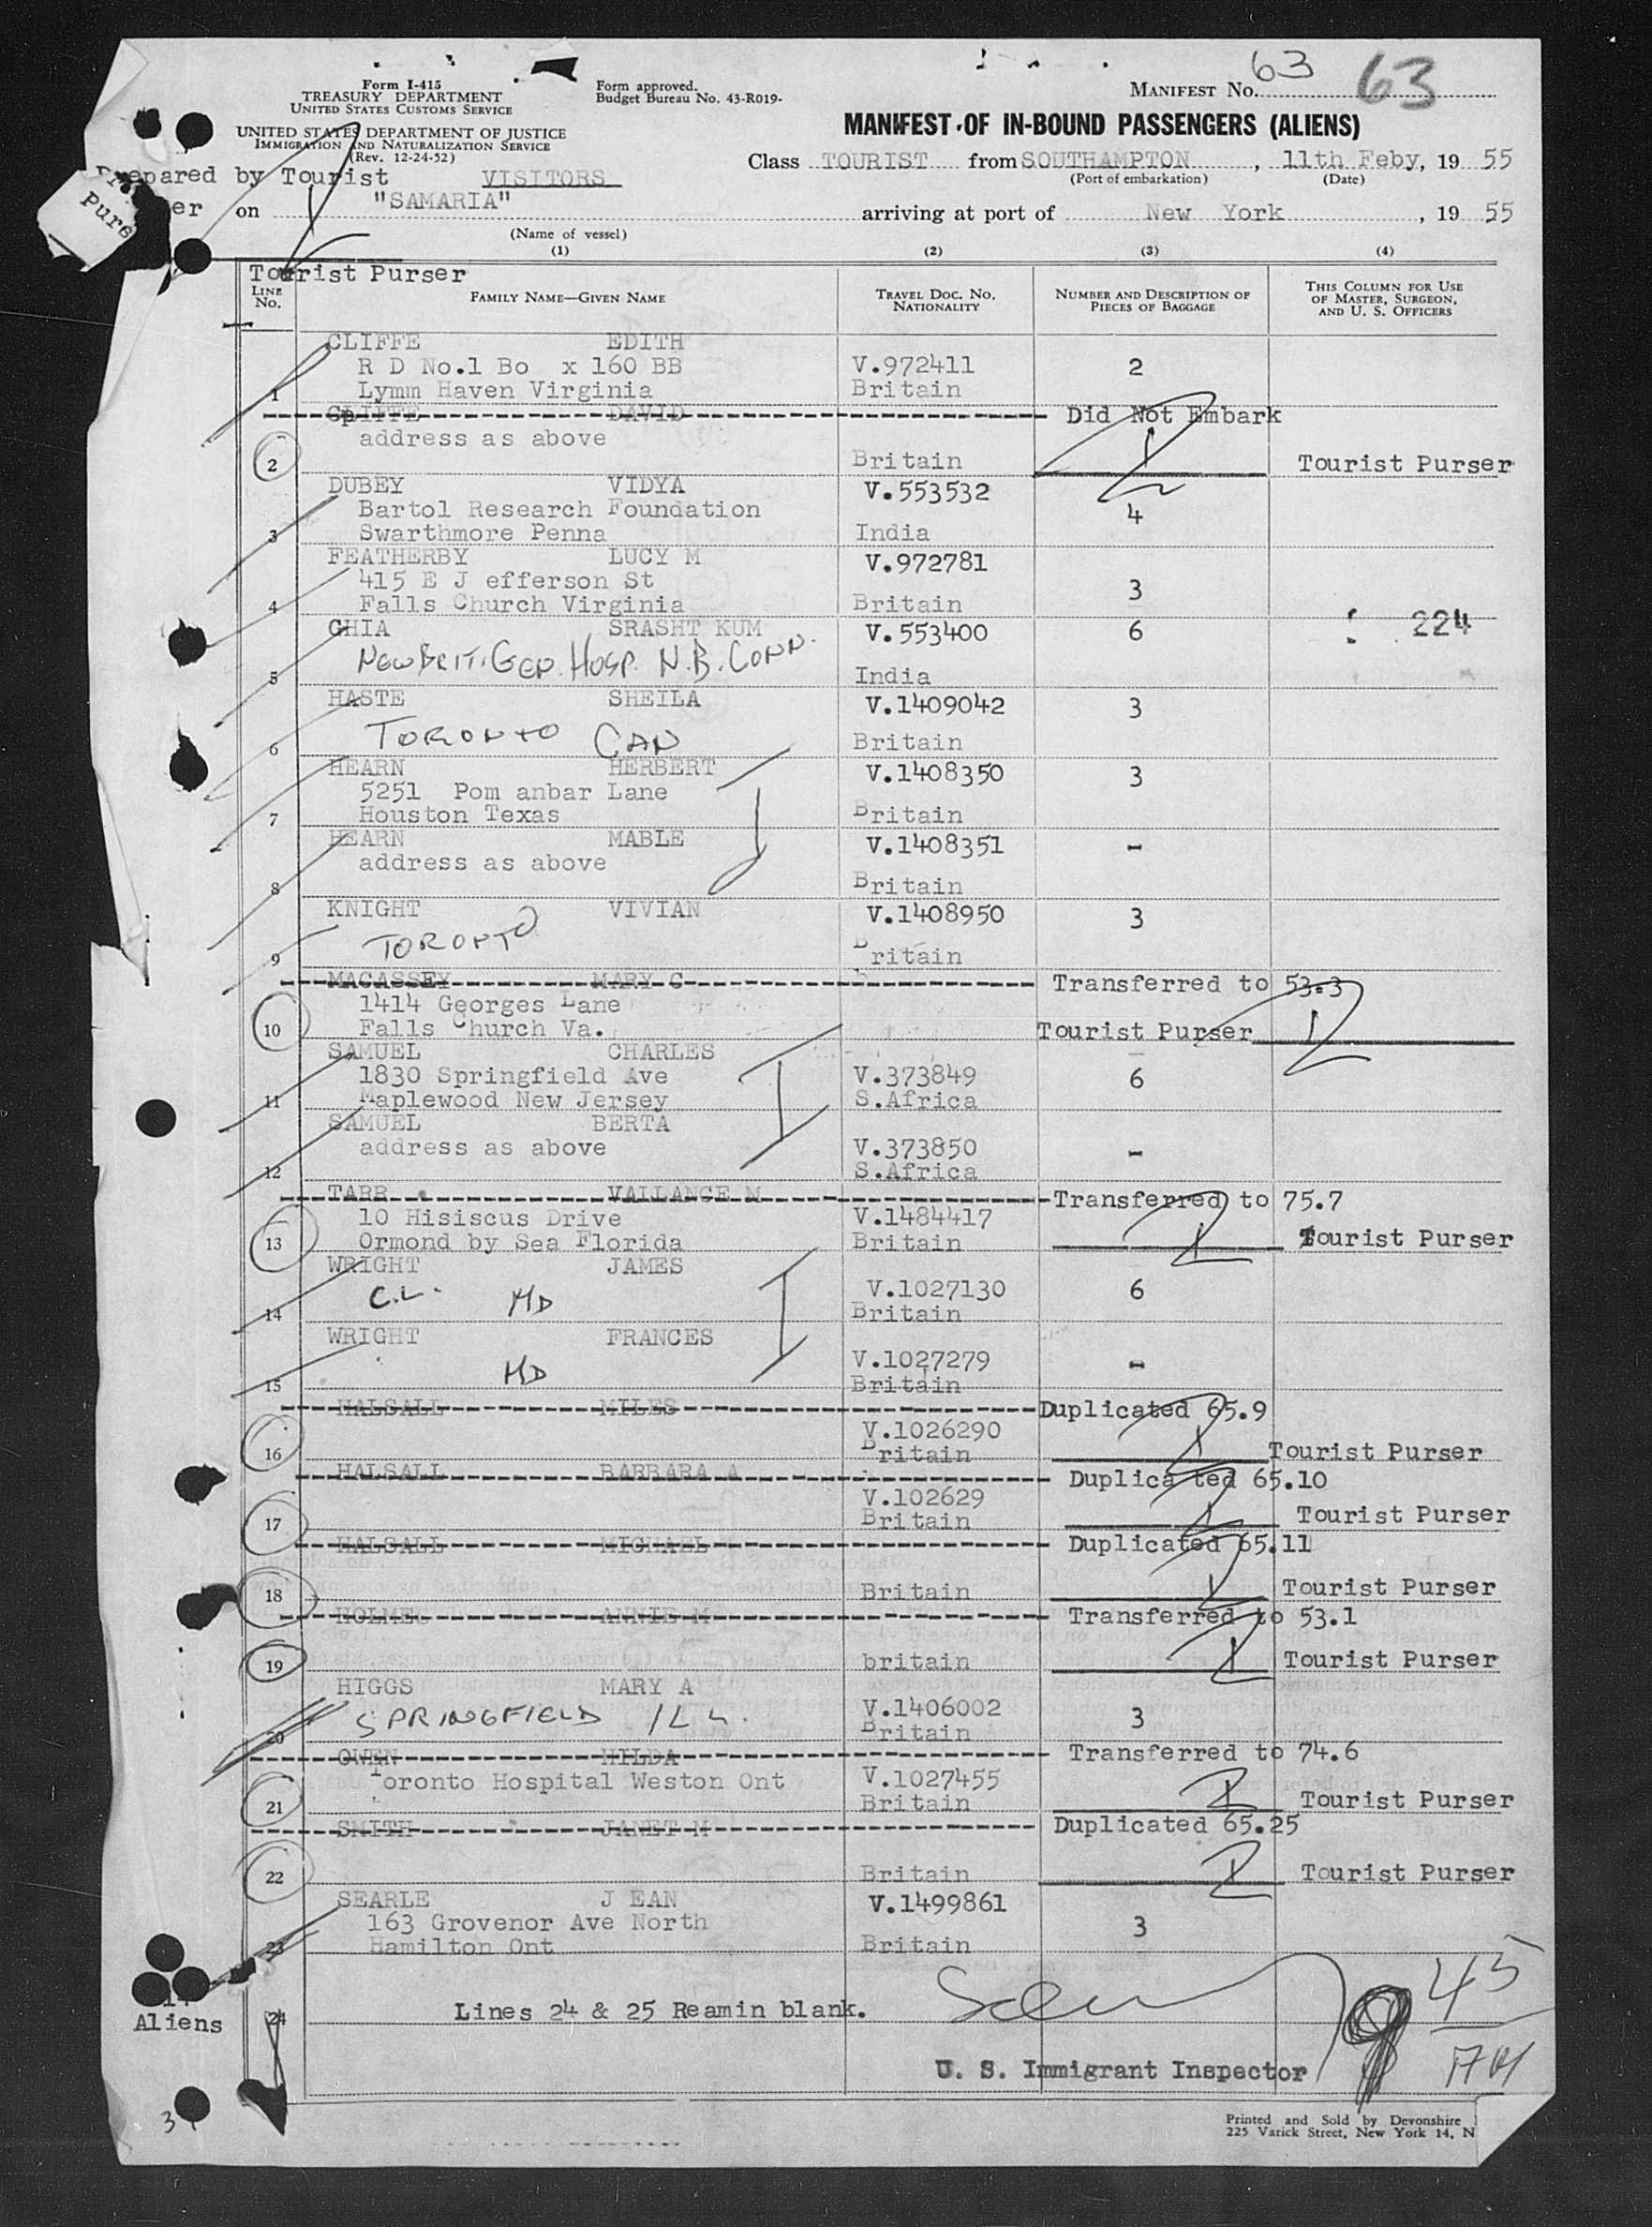 63 63
Form I-415
TREASURY DEPARTMENT
UNITED STATES CUSTOMS SERVICE
Form approved.
Budget Bureau No. 43-R019-
MANIFEST No.
UNITED STATES DEPARTMENT OF JUSTICE
IMMIGRATION AND NATURALIZATION SERVICE
(Rev. 12-24-52)
MANIFEST OF IN-BOUND PASSENGERS (ALIENS)
Class TOURIST from SOUTHAMPTON, 11th Feby, 19 55
(Port of embarkation) (Date)
Prepared by Tourist VISITORS
Purs er on "SAMARIA" arriving at port of New York, 19 55
(Name of vessel)
(1) (2) (3) (4)
Tourist Purser
LINE No. FAMILY NAME—GIVEN NAME TRAVEL DOC. NO. NATIONALITY NUMBER AND DESCRIPTION OF PIECES OF BAGGAGE THIS COLUMN FOR USE OF MASTER, SURGEON, AND U. S. OFFICERS
CLIFFE EDITH
R D No.1 Bo x 160 BB V.972411 2
1 Lymm Haven Virginia Britain
CLIFFE DAVID Did Not Embark
address as above
2 Britain Tourist Purser
DUBEY VIDYA V.553532
Bartol Research Foundation 4
3 Swarthmore Penna India
FEATHERBY LUCY M V.972781
415 E J efferson St 3
4 Falls Church Virginia Britain
GHIA SRASHT KUM V.553400 6 224
NEW BRIT. GEN. HOSP. N.B. CONN.
5 India
HASTE SHEILA V.1409042 3
TORONTO CAN
6 Britain
HEARN HERBERT V.1408350 3
5251 Pom anbar Lane
7 Houston Texas Britain
HEARN MABLE V.1408351 -
address as above
8 Britain
KNIGHT VIVIAN V.1408950 3
TORONTO
9 Britain
MACASSEY MARY C Transferred to 53.3
1414 Georges Lane
10 Falls Church Va. Tourist Purser
SAMUEL CHARLES
1830 Springfield Ave V.373849 6
11 Maplewood New Jersey S.Africa
SAMUEL BERTA
address as above V.373850 -
12 S.Africa
TARR VALLANCE M Transferred to 75.7
10 Hisiscus Drive V.1484417
13 Ormond by Sea Florida Britain Tourist Purser
WRIGHT JAMES
C.L. MD V.1027130 6
14 Britain
WRIGHT FRANCES
MD V.1027279 -
15 Britain
HALSALL MILES Duplicated 65.9
V.1026290
16 Britain Tourist Purser
HALSALL BARBARA A Duplica ted 65.10
V.102629
17 Britain Tourist Purser
HALSALL MICHAEL Duplicated 65.11
18 Britain Tourist Purser
HOLMES ANNIE M Transferred to 53.1
19 britain Tourist Purser
HIGGS MARY A
SPRINGFIELD ILL. V.1406002 3
20 Britain
OWEN HILDA Transferred to 74.6
Toronto Hospital Weston Ont V.1027455
21 Britain Tourist Purser
SMITH JANET M Duplicated 65.25
22 Britain Tourist Purser
SEARLE J EAN V.1499861
163 Grovenor Ave North 3
23 Hamilton Ont Britain
45
24 Lines 24 & 25 Reamin blank.
Aliens
U. S. Immigrant Inspector
3
Printed and Sold by Devonshire
225 Varick Street, New York 14, N